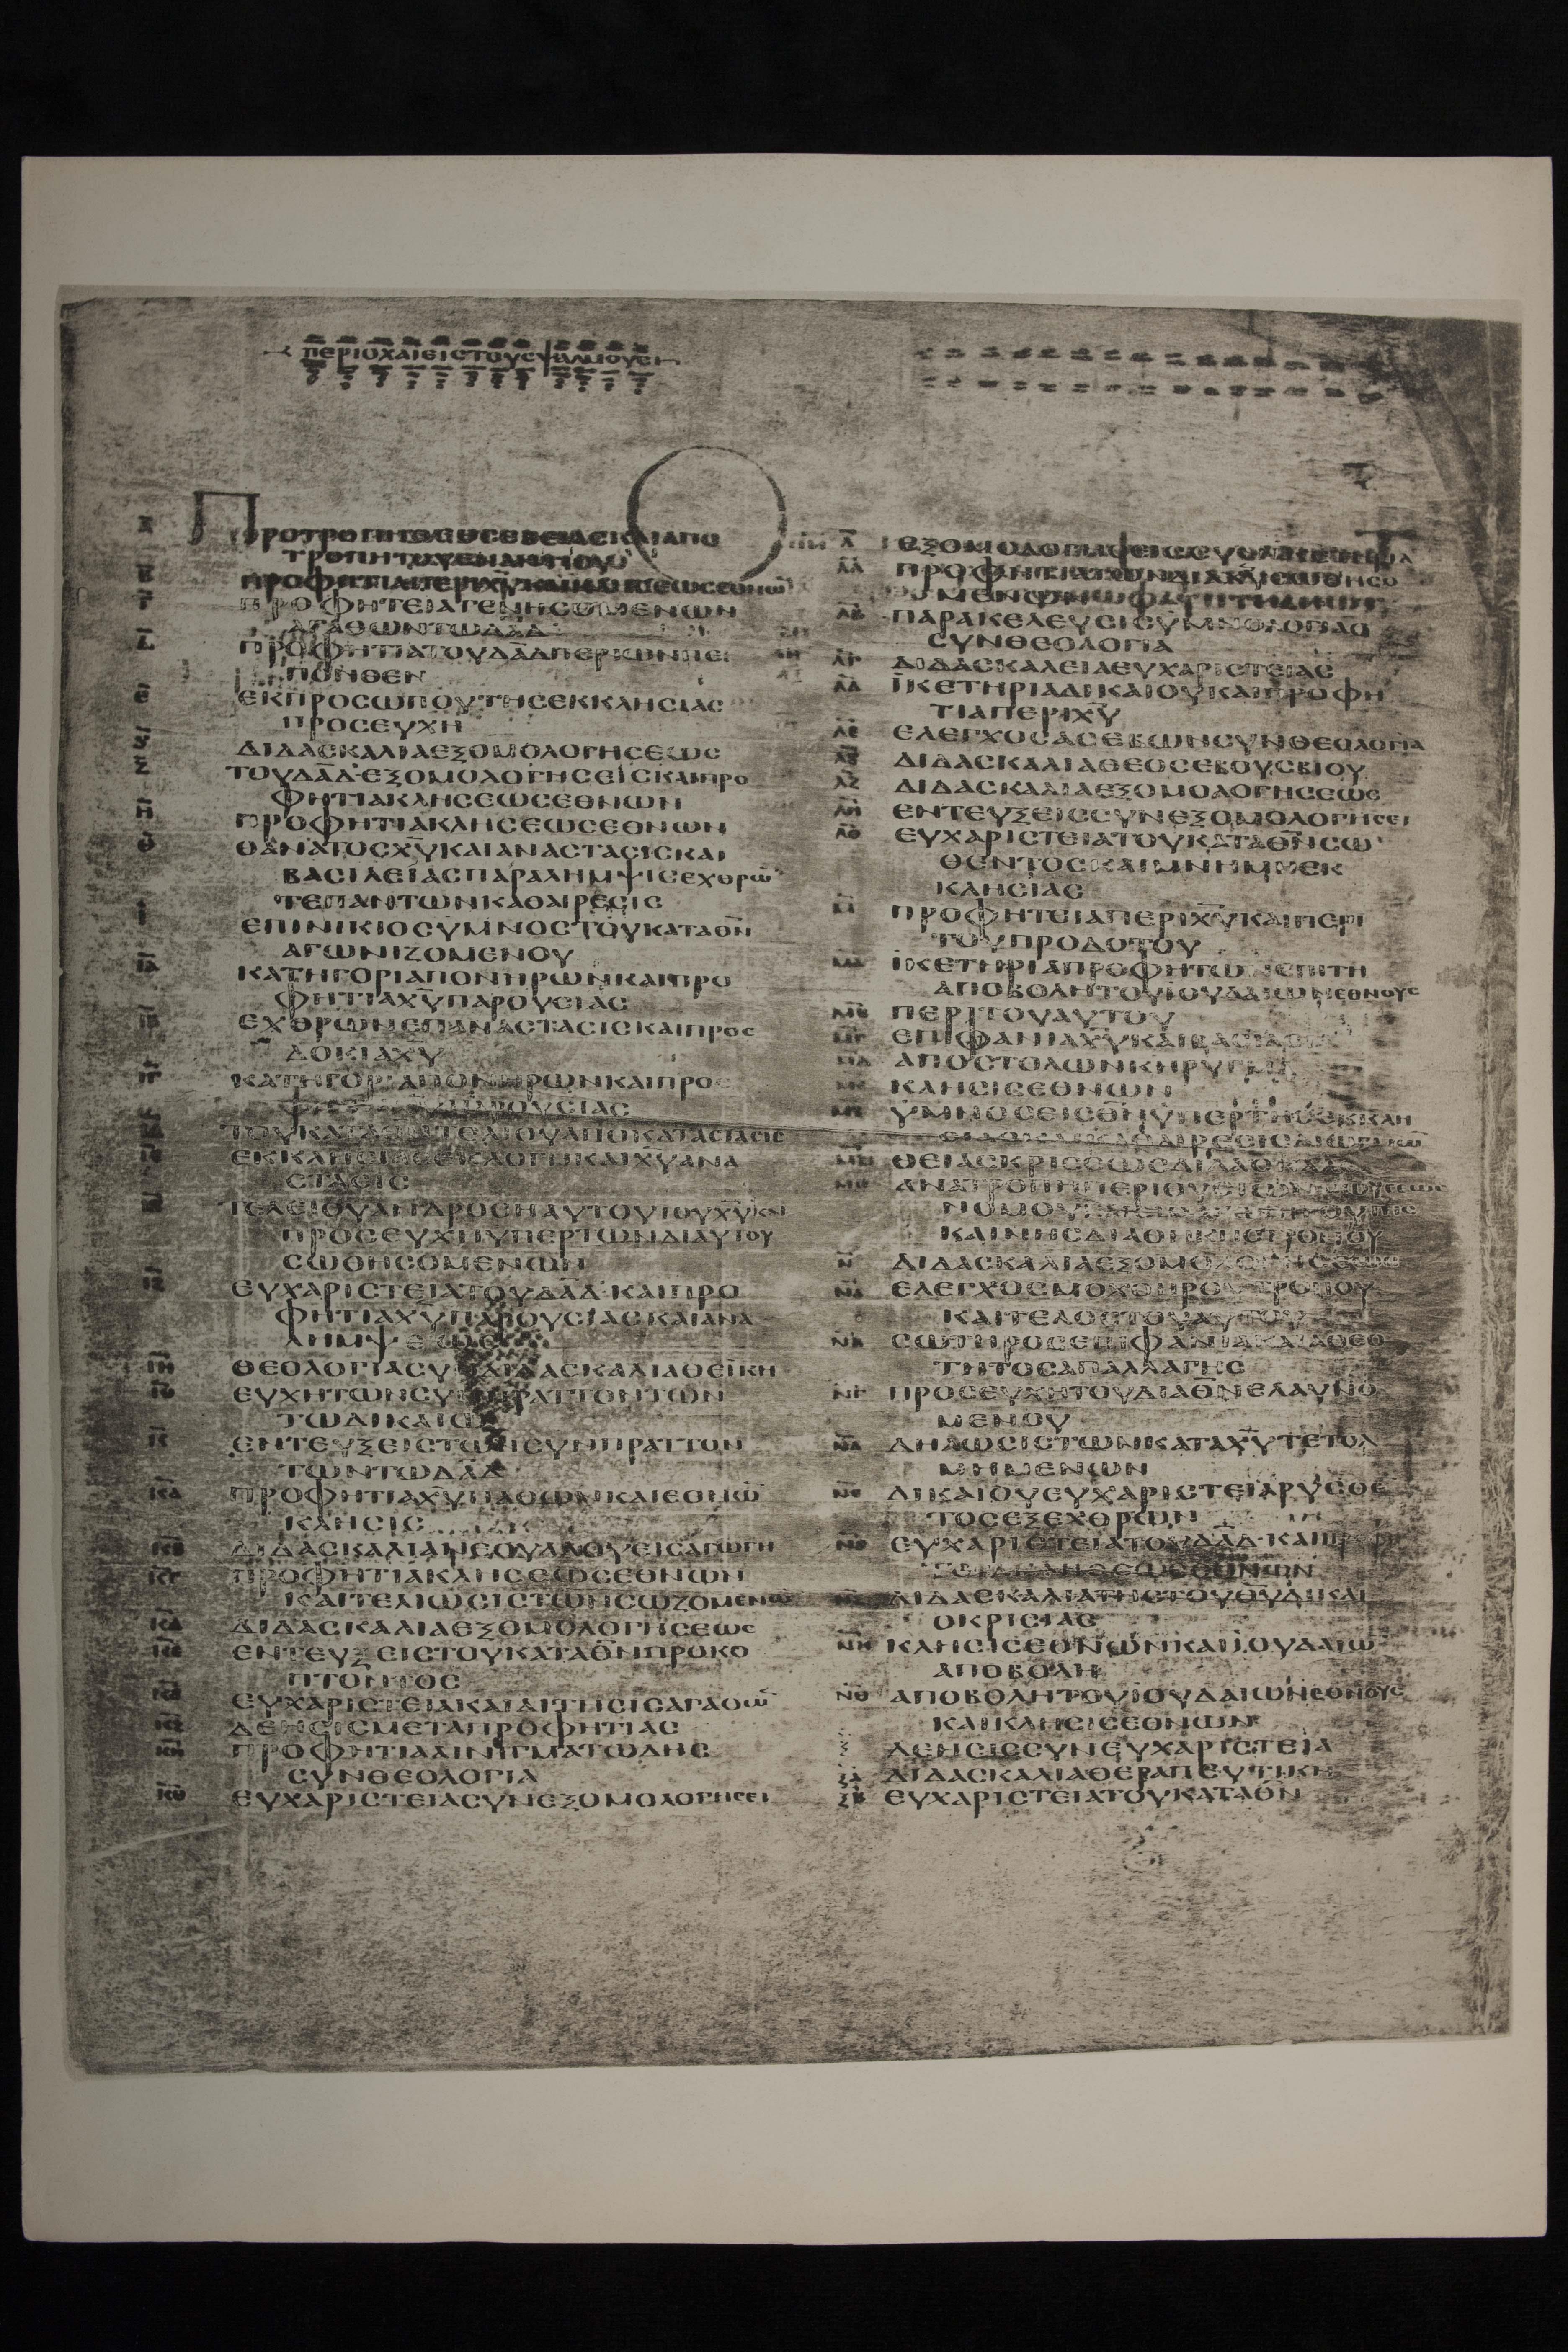 ΠΕΡΙΟΧΑΙΕΙϹΤΟΥϹΨΑΛΜΟΥϹ
Α̅ ΠΡΟΤΡΟΠΗΘΕΟϹΕΒΕΙΑϹΚΑΙΑΠΟ
ΤΡΟΠΗΤΟΥΕΝΑΝΤΙΟΥ
Β̅ ΠΡΟΦΗΤΙΑΠΕΡΙΧ̅Υ̅ΚΑΙΚΛΗϹΕΩϹΕΘΝΩ̅
Γ̅ ΠΡΟΦΗΤΕΙΑΓΕΝΗϹΟΜΕΝΩΝ
ΑΓΑΘΩΝΤΩΔ̅Α̅Δ̅
Δ̅ ΠΡΟΦΗΤΙΑΤΟΥΔ̅Α̅Δ̅ΠΕΡΙΩΝΠΕ
ΠΟΝΘΕΝ
Ε̅ ΕΚΠΡΟϹΩΠΟΥΤΗϹΕΚΚΛΗϹΙΑϹ
ΠΡΟϹΕΥΧΗ
ΔΙΔΑϹΚΑΛΙΑΕΞΟΜΟΛΟΓΗϹΕΩϹ
Ζ̅ ΤΟΥΔ̅Α̅Δ̅ΕΞΟΜΟΛΟΓΗϹΕΙϹΚΑΙΠΡΟ
ΦΗΤΙΑΚΛΗϹΕΩϹΕΘΝΩΝ
Η̅ ΠΡΟΦΗΤΙΑΚΛΗϹΕΩϹΕΘΝΩΝ
Θ̅ ΘΑΝΑΤΟϹΧ̅Υ̅ΚΑΙΑΝΑϹΤΑϹΙϹΚΑΙ
ΒΑϹΙΛΕΙΑϹΠΑΡΑΛΗΜΨΙϹΕΧΘΡΩ̅
ΤΕΠΑΝΤΩΝΚΑΘΑΙΡΕϹΙϹ
Ι̅ ΕΠΙΝΙΚΙΟϹΥΜΝΟϹΤΟΥΚΑΤΑΘ̅Ν̅
ΑΓΩΝΙΖΟΜΕΝΟΥ
Ι̅Α̅ ΚΑΤΗΓΟΡΙΑΠΟΝΗΡΩΝΚΑΙΠΡΟ
ΦΗΤΙΑΧ̅Υ̅ΠΑΡΟΥϹΙΑϹ
Ι̅Β̅ ΕΧΘΡΩΝΕΠΑΝΑϹΤΑϹΙϹΚΑΙΠΡΟϹ
ΔΟΚΙΑΧ̅Υ̅
Ι̅Γ̅ ΚΑΤΗΓΟΡΙΑΠΟΝΗΡΩΝΚΑΙΠΡΟ
ΠΑΡΟΥϹΙΑϹ
ΤΟΥΚΑΤΑΘ̅Ν̅ΤΕΛΙΟΥΑΠΟΚΑΤΑϹΤΑϹΙϹ
ΕΚΚΛΗϹΙΑϹΕΚΛΟΓΗΚΑΙΧ̅Υ̅ΑΝΑ
ϹΤΑϹΙϹ
ΤΕΛΕΙΟΥΑΝΔΡΟϹΗΑΥΤΟΥΙΟΥΧ̅Υ̅ΚΑΙ
ΠΡΟϹΕΥΧΗΥΠΕΡΤΩΝΔΙΑΥΤΟΥ
ϹΩΘΗϹΟΜΕΝΩΝ
Ι̅Ζ̅ ΕΥΧΑΡΙϹΤΕΙΑΤΟΥΔ̅Α̅Δ̅ΚΑΙΠΡΟ
ΦΗΤΙΑΧ̅Υ̅ΠΑΡΟΥϹΙΑϹΚΑΙΑΝΑ
ΛΗΜΨΕΩϹ
Ι̅Η̅ ΘΕΟΛΟΓΙΑϹΥΝΔΙΔΑϹΚΑΛΙΑΘΕΪΚΗ
Ι̅Θ̅ ΕΥΧΗΤΩΝϹΥΝΠΡΑΤΤΟΝΤΩΝ
ΤΩΔΙΚΑΙΩ
Κ̅ ΕΝΤΕΥΞΕΙϹΤΩΝϹΥΝΠΡΑΤΤΟΝ
ΤΩΝΤΩΔ̅Α̅Δ̅
Κ̅Α̅ ΠΡΟΦΗΤΙΑΧ̅Υ̅ΠΑΘΩΝΚΑΙΕΘΝΩ̅
ΚΛΗϹΙϹ
Κ̅Β̅ ΔΙΔΑϹΚΑΛΙΑΝΕΟΥΛΑΟΥΕΙϹΑΓΩΓΗ
Κ̅Γ̅ ΠΡΟΦΗΤΙΑΚΛΗϹΕΩϹΕΘΝΩΝ
ΚΑΙΤΕΛΙΩϹΙϹΤΩΝϹΩΖΟΜΕΝΩ̅
Κ̅Δ̅ ΔΙΔΑϹΚΑΛΙΑΕΞΟΜΟΛΟΓΗϹΕΩϹ
Κ̅Ε̅ ΕΝΤΕΥΞΕΙϹΤΟΥΚΑΤΑΘ̅Ν̅ΠΡΟΚΟ
ΠΤΟΝΤΟϹ
ΕΥΧΑΡΙϹΤΕΙΑΚΑΙΑΙΤΗϹΙϹΑΓΑΘΩ̅
Κ̅Ζ̅ ΔΕΗϹΙϹΜΕΤΑΠΡΟΦΗΤΙΑϹ
Κ̅Η̅ ΠΡΟΦΗΤΙΑΑΙΝΙΓΜΑΤΩΔΗϹ
ϹΥΝΘΕΟΛΟΓΙΑ
Κ̅Θ̅ ΕΥΧΑΡΙϹΤΕΙΑϹΥΝΕΞΟΜΟΛΟΓΗϹΕΙ
Λ̅
Λ̅Α̅
Λ̅Β̅ ΠΑΡΑΚΕΛΕΥϹΙϹΥΜΝΟΛΟΓΙΑϹ
ϹΥΝΘΕΟΛΟΓΙΑ
Λ̅Γ̅ ΔΙΔΑϹΚΑΛΕΙΑΕΥΧΑΡΙϹΤΕΙΑϹ
Λ̅Δ̅ ΪΚΕΤΗΡΙΑΔΙΚΑΙΟΥΚΑΙΠΡΟΦΗ
ΤΙΑΠΕΡΙΧ̅Υ̅
Λ̅Ε̅ ΕΛΕΓΧΟϹΑϹΕΒΩΝϹΥΝΘΕΟΛΟΓΙΑ
ΔΙΔΑϹΚΑΛΙΑΘΕΟϹΕΒΟΥϹΒΙΟΥ
Λ̅Ζ̅ ΔΙΔΑϹΚΑΛΙΑΕΞΟΜΟΛΟΓΗϹΕΩϹ
Λ̅Η̅ ΕΝΤΕΥΞΕΙϹϹΥΝΕΞΟΜΟΛΟΓΗϹΕΙ
Λ̅Θ̅ ΕΥΧΑΡΙϹΤΕΙΑΤΟΥΚΑΤΑΘ̅Ν̅ϹΩ
ΘΕΝΤΟϹΚΑΙΜΝΗΜΗΕΚ
ΚΛΗϹΙΑϹ
Μ̅ ΠΡΟΦΗΤΕΙΑΠΕΡΙΧ̅Υ̅ΚΑΙΠΕΡΙ
ΤΟΥΠΡΟΔΟΤΟΥ
Μ̅Α̅ ΪΚΕΤΗΡΙΑΠΡΟΦΗΤΩΝΕΠΙΤΗ
ΑΠΟΒΟΛΗΤΟΥΙΟΥΔΑΙΩΝΕΘΝΟΥϹ
Μ̅Β̅ ΠΕΡΙΤΟΥΑΥΤΟΥ
Μ̅Γ̅ ΕΠΙΦΑΝΙΑΧ̅Υ̅ΚΑΙΒΑϹΙΛΕΙΑ
Μ̅Δ̅ ΑΠΟϹΤΟΛΩΝΚΗΡΥΓΜΑ
ΚΛΗϹΙϹΕΘΝΩΝ
ΫΜΝΟϹΕΙϹΘ̅Ν̅ΫΠΕΡΤΗϹΕΚΚΛΗ
ΘΕΙΑϹΚΡΙϹΕΩϹΔΙΔΑϹΚΑΛΙΑ
ΚΑΙΝΗϹΔΙΑΘΗΚΗϹΤΡΟΠΟΥ
Ν̅ ΔΙΔΑϹΚΑΛΙΑΕΞΟΜΟΛΟΓΗϹΕΩϹ
Ν̅Α̅ ΕΛΕΓΧΟϹΜΟΧΘΗΡΟΥΤΡΟΠΟΥ
ΚΑΙΤΕΛΟϹΤΟΥΑΥΤΟΥ
Ν̅Β̅ ϹΩΤΗΡΟϹΕΠΙΦΑΝΙΑΚΑΙΑΘΕΟ
ΤΗΤΟϹΑΠΑΛΛΑΓΗϹ
Ν̅Γ̅ ΠΡΟϹΕΥΧΗΤΟΥΔΙΑΘ̅Ν̅ΕΛΑΥΝΟ
ΜΕΝΟΥ
Ν̅Δ̅ ΔΗΛΩϹΙϹΤΩΝΚΑΤΑΧ̅Υ̅ΤΕΤΟΛ
ΜΗΜΕΝΩΝ
Ν̅Ε̅ ΔΙΚΑΙΟΥΕΥΧΑΡΙϹΤΕΙΑΡΥϹΘΕ
ΤΟϹΕΞΕΧΘΡΩΝ
ΕΥΧΑΡΙϹΤΕΙΑΤΟΥΔ̅Α̅Δ̅ΚΑΙ
ΔΙΔΑϹΚΑΛΙΑΤΗϹΤΟΥΘ̅Υ̅ΔΙΚΑΙ
ΟΚΡΙϹΙΑϹ
Ν̅Η̅ ΚΛΗϹΙϹΕΘΝΩΝΚΑΙΙΟΥΔΑΙΩ̅
ΑΠΟΒΟΛΗ
Ν̅Θ̅ ΑΠΟΒΟΛΗΤΟΥΙΟΥΔΑΙΩΝΕΘΝΟΥϹ
ΚΑΙΚΛΗϹΙϹΕΘΝΩΝ
Ξ̅ ΔΕΗϹΙϹϹΥΝΕΥΧΑΡΙϹΤΕΙΑ
Ξ̅Α̅ ΔΙΔΑϹΚΑΛΙΑΘΕΡΑΠΕΥΤΙΚΗ
Ξ̅Β̅ ΕΥΧΑΡΙϹΤΕΙΑΤΟΥΚΑΤΑΘ̅Ν̅